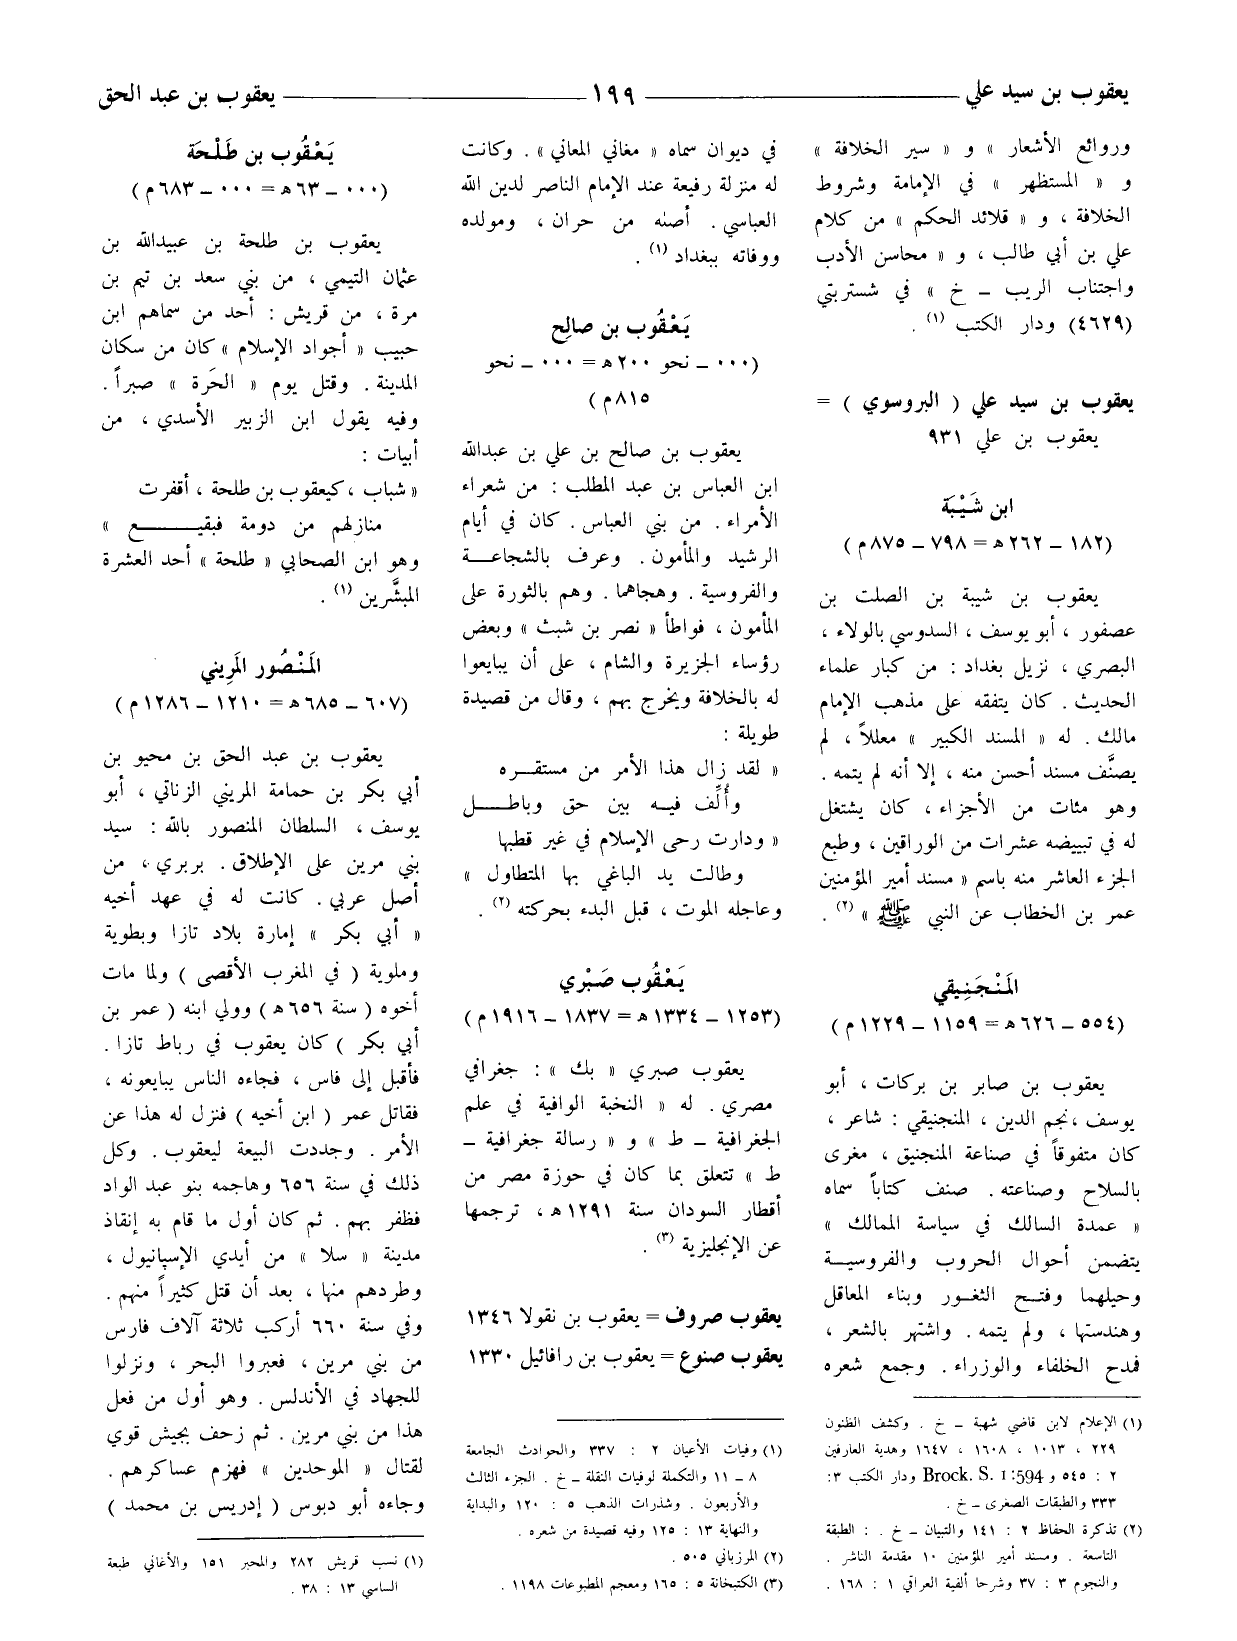 يعقوب بن سيد علي ــــــ ١٩٩ ــــــ يعقوب بن عبد الحق
وروائع الأشعار » و « سير الخلافة »
و « المستظهر » في الإمامة وشروط
الخلافة ، و « قلائد الحكم » من كلام
علي بن أبي طالب ، و « محاسن الأدب
واجتناب الريب ــ خ » في شستربتي
(٤٦٢٩) ودار الكتب (١) .
يعقوب بن سيد علي ( البروسوي ) =
يعقوب بن علي ٩٣١
ابن شَيْبَة
(١٨٢ ــ ٢٦٢ هـ = ٧٩٨ ــ ٨٧٥ م )
يعقوب بن شيبة بن الصلت بن
عصفور ، أبو يوسف ، السدوسي بالولاء ،
البصري ، نزيل بغداد : من كبار علماء
الحديث . كان يتفقه على مذهب الإمام
مالك . له « المسند الكبير » معللاً ، لم
يصنَّف مسند أحسن منه ، إلا أنه لم يتمه .
وهو مئات من الأجزاء ، كان يشتغل
له في تبييضه عشرات من الوراقين ، وطبع
الجزء العاشر منه باسم « مسند أمير المؤمنين
عمر بن الخطاب عن النبي ﷺ » (٢) .
المَنْجَنِيقي
(٥٥٤ ــ ٦٢٦ هـ = ١١٥٩ ــ ١٢٢٩ م )
يعقوب بن صابر بن بركات ، أبو
يوسف ، نجم الدين ، المنجنيقي : شاعر ،
كان متفوقاً في صناعة المنجنيق ، مغرى
بالسلاح وصناعته . صنف كتاباً سماه
« عمدة السالك في سياسة الممالك »
يتضمن أحوال الحروب والفروسيــة
وحيلهما وفتــح الثغــور وبناء المعاقل
وهندستها ، ولم يتمه . واشتهر بالشعر ،
فمدح الخلفاء والوزراء . وجمع شعره
(١) الإعلام لابن قاضي شهبة ــ خ . وكشف الظنون
٢٢٩ ، ١٠١٣ ، ١٦٠٨ ، ١٦٤٧ وهدية العارفين
٢ : ٥٤٥ و Brock. S. 1:594 ودار الكتب ٣:
٣٣٣ والطبقات الصغرى ــ خ .
(٢) تذكرة الحفاظ ٢ : ١٤١ والتبيان ــ خ . : الطبقة
التاسعة . ومسند أمير المؤمنين ١٠ مقدمة الناشر .
والنجوم ٣ : ٣٧ وشرحا ألفية العراقي ١ : ١٦٨ .
في ديوان سماه « مغاني المعاني » . وكانت
له منزلة رفيعة عند الإمام الناصر لدين الله
العباسي . أصله من حران ، ومولده
ووفاته ببغداد (١) .
يَعْقُوب بن صالِح
(٠٠٠ ــ نحو ٢٠٠ هـ = ٠٠٠ ــ نحو
٨١٥ م )
يعقوب بن صالح بن علي بن عبدالله
ابن العباس بن عبد المطلب : من شعراء
الأمراء . من بني العباس . كان في أيام
الرشيد والمأمون . وعرف بالشجاعــة
والفروسية . وهجاهما . وهم بالثورة على
المأمون ، فواطأ « نصر بن شبث » وبعض
رؤساء الجزيرة والشام ، على أن يبايعوا
له بالخلافة ويخرج بهم ، وقال من قصيدة
طويلة :
« لقد زال هذا الأمر من مستقــره
وأُلِّف فيــه بين حق وباطــل
« ودارت رحى الإسلام في غير قطبها
وطالت يد الباغي بها المتطاول »
وعاجله الموت ، قبل البدء بحركته (٢) .
يَعْقُوب صَبْري
(١٢٥٣ ــ ١٣٣٤ هـ = ١٨٣٧ ــ ١٩١٦ م )
يعقوب صبري « بك » : جغرافي
مصري . له « النخبة الوافية في علم
الجغرافية ــ ط » و « رسالة جغرافية ــ
ط » تتعلق بما كان في حوزة مصر من
أقطار السودان سنة ١٢٩١ هـ ، ترجمها
عن الإنجليزية (٣) .
يعقوب صروف = يعقوب بن نقولا ١٣٤٦
يعقوب صنوع = يعقوب بن رافائيل ١٣٣٠
(١) وفيات الأعيان ٢ : ٣٣٧ والحوادث الجامعة
٨ ــ ١١ والتكملة لوفيات النقلة ــ خ . الجزء الثالث
والأربعون . وشذرات الذهب ٥ : ١٢٠ والبداية
والنهاية ١٣ : ١٢٥ وفيه قصيدة من شعره .
(٢) المرزباني ٥٠٥ .
(٣) الكتبخانة ٥ : ١٦٥ ومعجم المطبوعات ١١٩٨ .
يَعْقُوب بن طَلْحَة
(٠٠٠ ــ ٦٣ هـ = ٠٠٠ ــ ٦٨٣ م )
يعقوب بن طلحة بن عبيدالله بن
عثمان التيمي ، من بني سعد بن تيم بن
مرة ، من قريش : أحد من سماهم ابن
حبيب « أجواد الإسلام » كان من سكان
المدينة . وقتل يوم « الحَرة » صبراً .
وفيه يقول ابن الزبير الأسدي ، من
أبيات :
« شباب ، كيعقوب بن طلحة ، أقفرت
منازلهم من دومة فبقيــع »
وهو ابن الصحابي « طلحة » أحد العشرة
المبشَّرين (١) .
المَنْصُور المَرِيني
(٦٠٧ ــ ٦٨٥ هـ = ١٢١٠ ــ ١٢٨٦ م )
يعقوب بن عبد الحق بن محيو بن
أبي بكر بن حمامة المريني الزناتي ، أبو
يوسف ، السلطان المنصور بالله : سيد
بني مرين على الإطلاق . بربري ، من
أصل عربي . كانت له في عهد أخيه
« أبي بكر » إمارة بلاد تازا وبطوية
وملوية ( في المغرب الأقصى ) ولما مات
أخوه ( سنة ٦٥٦ هـ ) وولي ابنه ( عمر بن
أبي بكر ) كان يعقوب في رباط تازا .
فأقبل إلى فاس ، فجاءه الناس يبايعونه ،
فقاتل عمر ( ابن أخيه ) فنزل له هذا عن
الأمر . وجددت البيعة ليعقوب . وكل
ذلك في سنة ٦٥٦ وهاجمه بنو عبد الواد
فظفر بهم . ثم كان أول ما قام به إنقاذ
مدينة « سلا » من أيدي الإسپانيول ،
وطردهم منها ، بعد أن قتل كثيراً منهم .
وفي سنة ٦٦٠ أركب ثلاثة آلاف فارس
من بني مرين ، فعبروا البحر ، ونزلوا
للجهاد في الأندلس . وهو أول من فعل
هذا من بني مرين . ثم زحف بجيش قوي
لقتال « الموحدين » فهزم عساكرهم .
وجاءه أبو دبوس ( إدريس بن محمد )
(١) نسب قريش ٢٨٢ والمحبر ١٥١ والأغاني طبعة
الساسي ١٣ : ٣٨ .